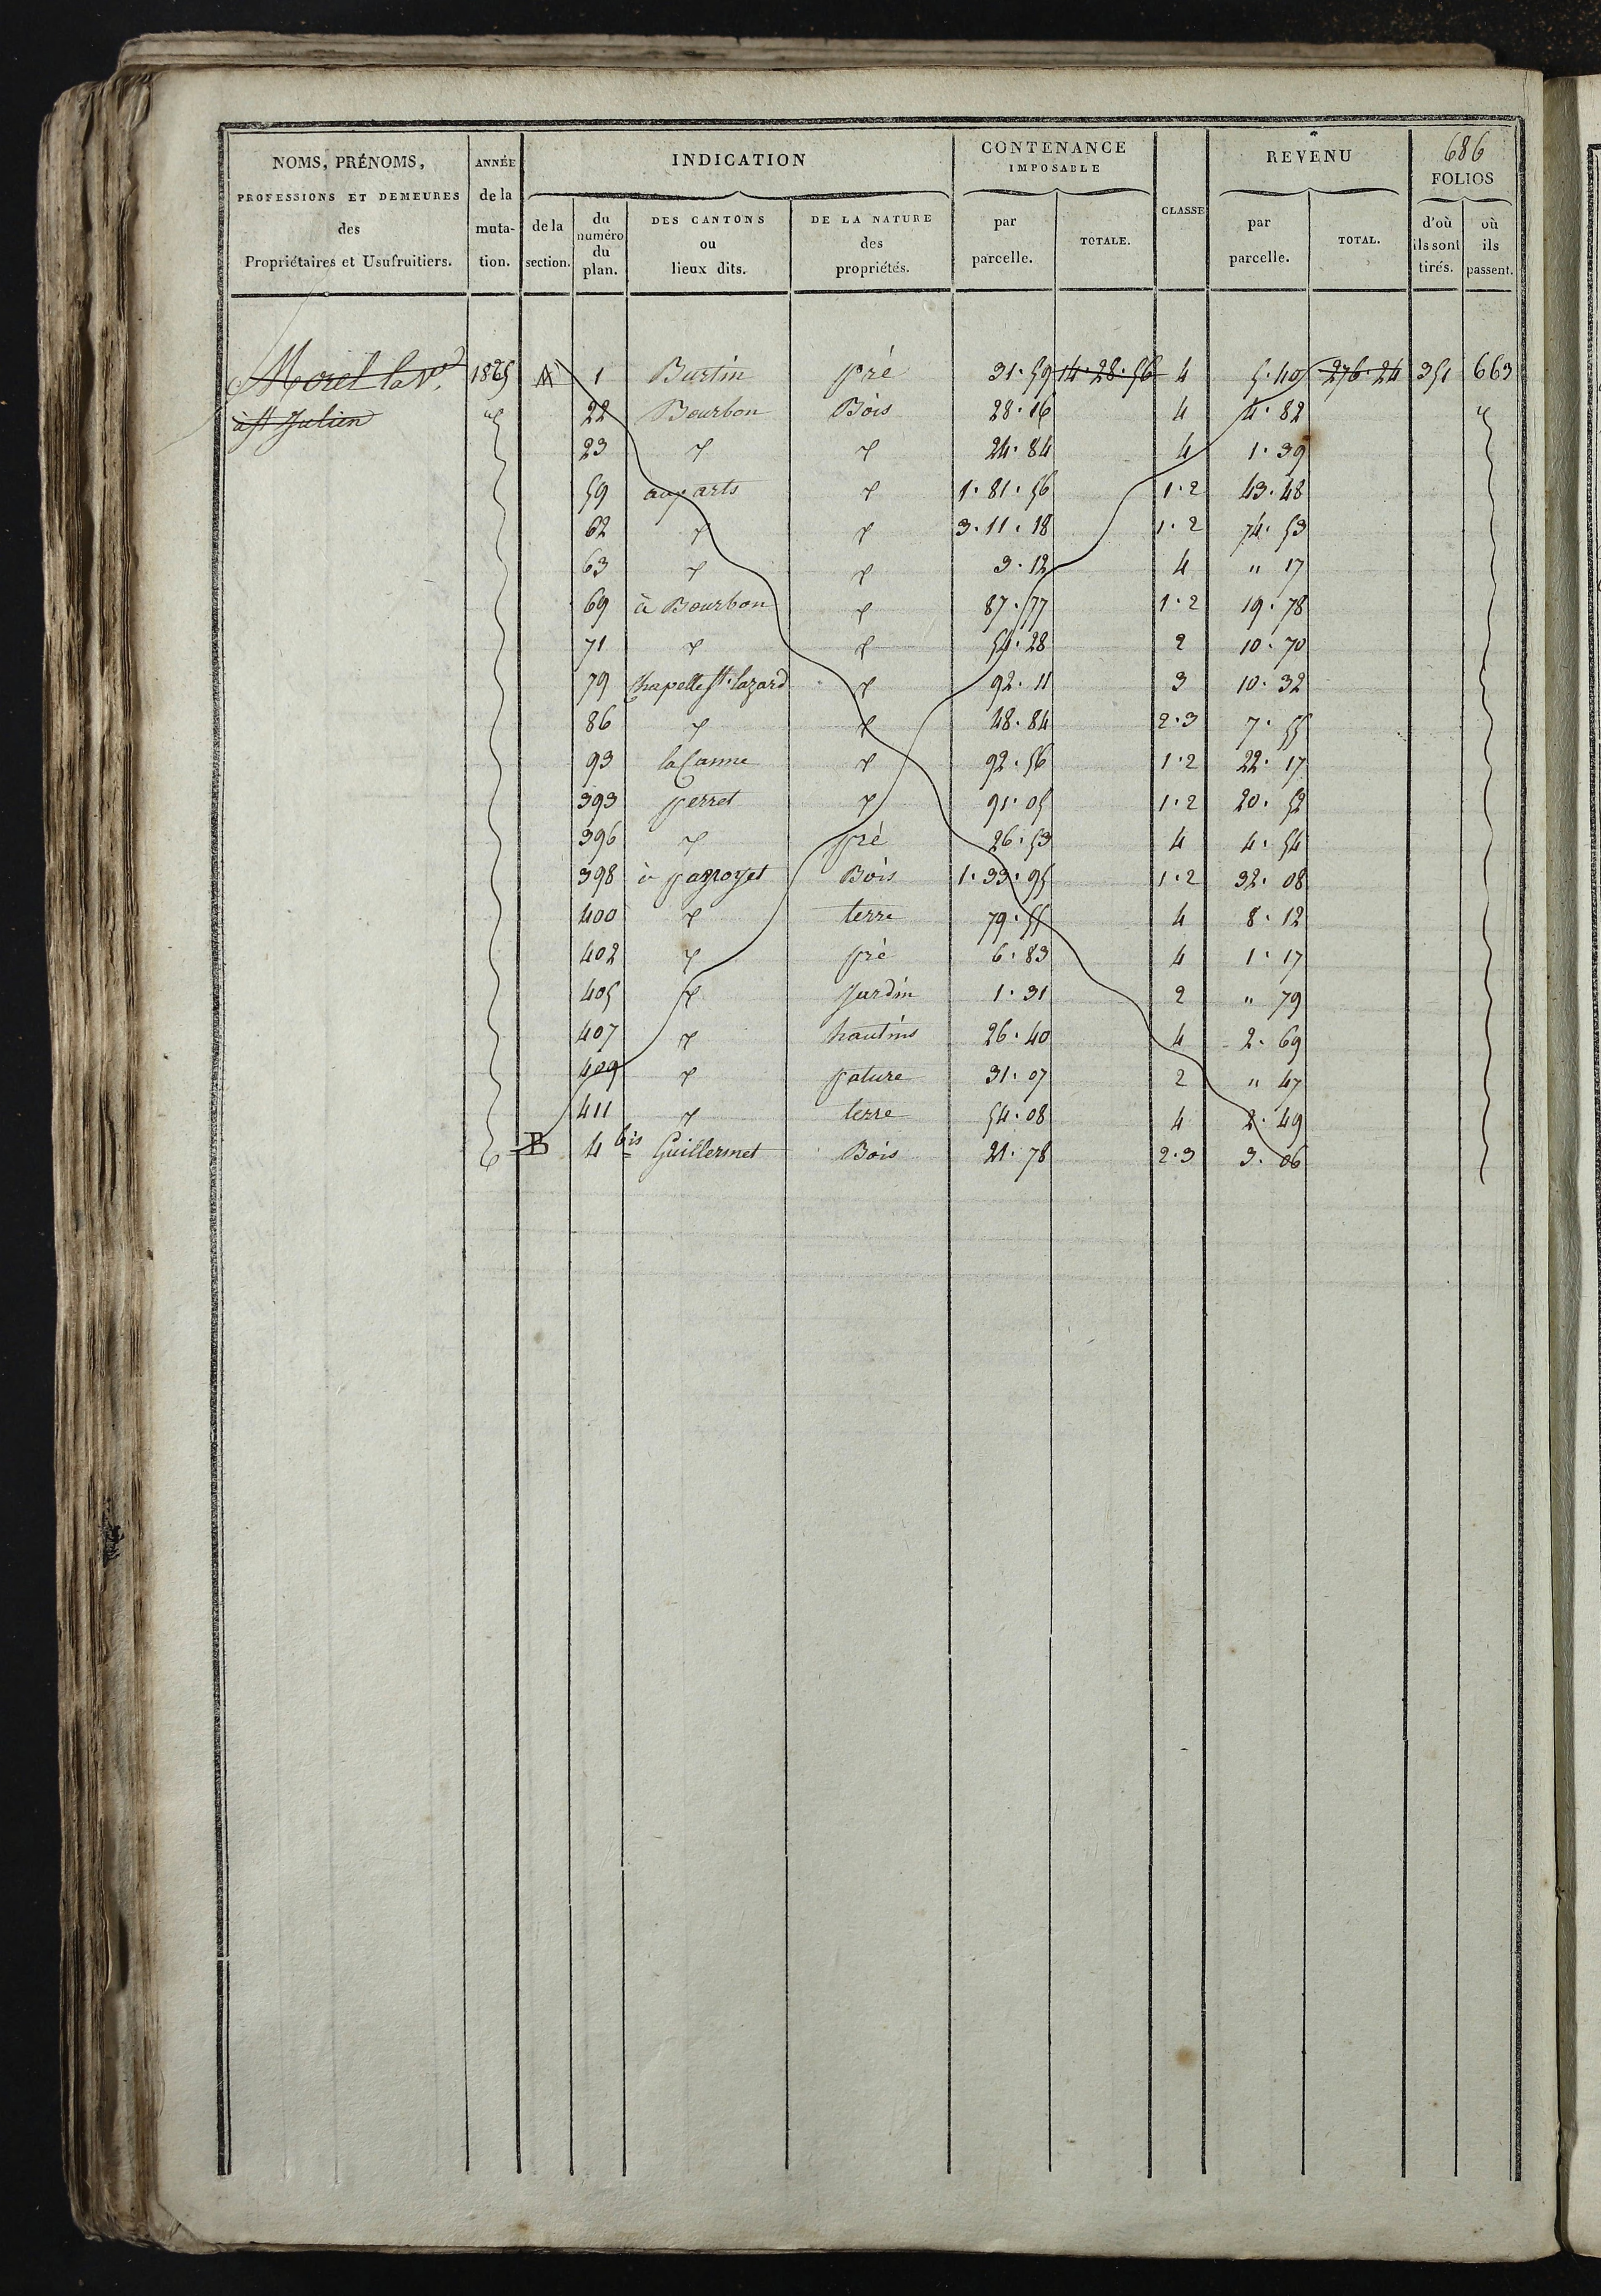 686
NOMS, PRÉNOMS, PROFESSIONS ET DEMEURES des Propriétaires et Usufruitiers.
ANNÉE de la muta- tion.
INDICATION
de la section.
du numéro du plan.
DES CANTONS ou lieux dits.
DE LA NATURE des propriétés.
CONTENANCE IMPOSABLE
par parcelle.
TOTALE.
CLASSE
REVENU
par parcelle.
TOTAL.
FOLIOS
d'où ils sont tirés.
où ils passent.
Morel la Ve 1825 A 1 Burtin pré 31·59 14·28·56 4 5·40 276·24 351 663
à St Julien 22 Bourbon Bois 28·16 4 4·82
23 " " 24·84 4 1·39
59 aux arts " 1·81·56 1·2 43·48
62 " " 3·11·18 1·2 74·53
63 " " 3·12 4 " 17
69 à Bourbon " 87·77 1·2 19·78
71 " " 54·28 2 10·70
79 Chapelle St. lazard " 92·11 3 10·32
86 " " 48·84 2·3 7·55
93 la Canne " 92·56 1·2 22·17
393 perret " 91·05 1·2 20·52
396 " pré 26·53 4 4·54
398 à Bois 1·33·95 1·2 32·08
400 " terre 79·55 4 8·12
402 " pré 6·83 4 1·17
405 " Jardin 1·31 2 " 79
407 " hautins 26·40 4 2·69
409 " pature 31·07 2 " 47
411 " terre 54·08 4 2·49
B 4 bis Guillermet Bois 21·78 2·3 3·06